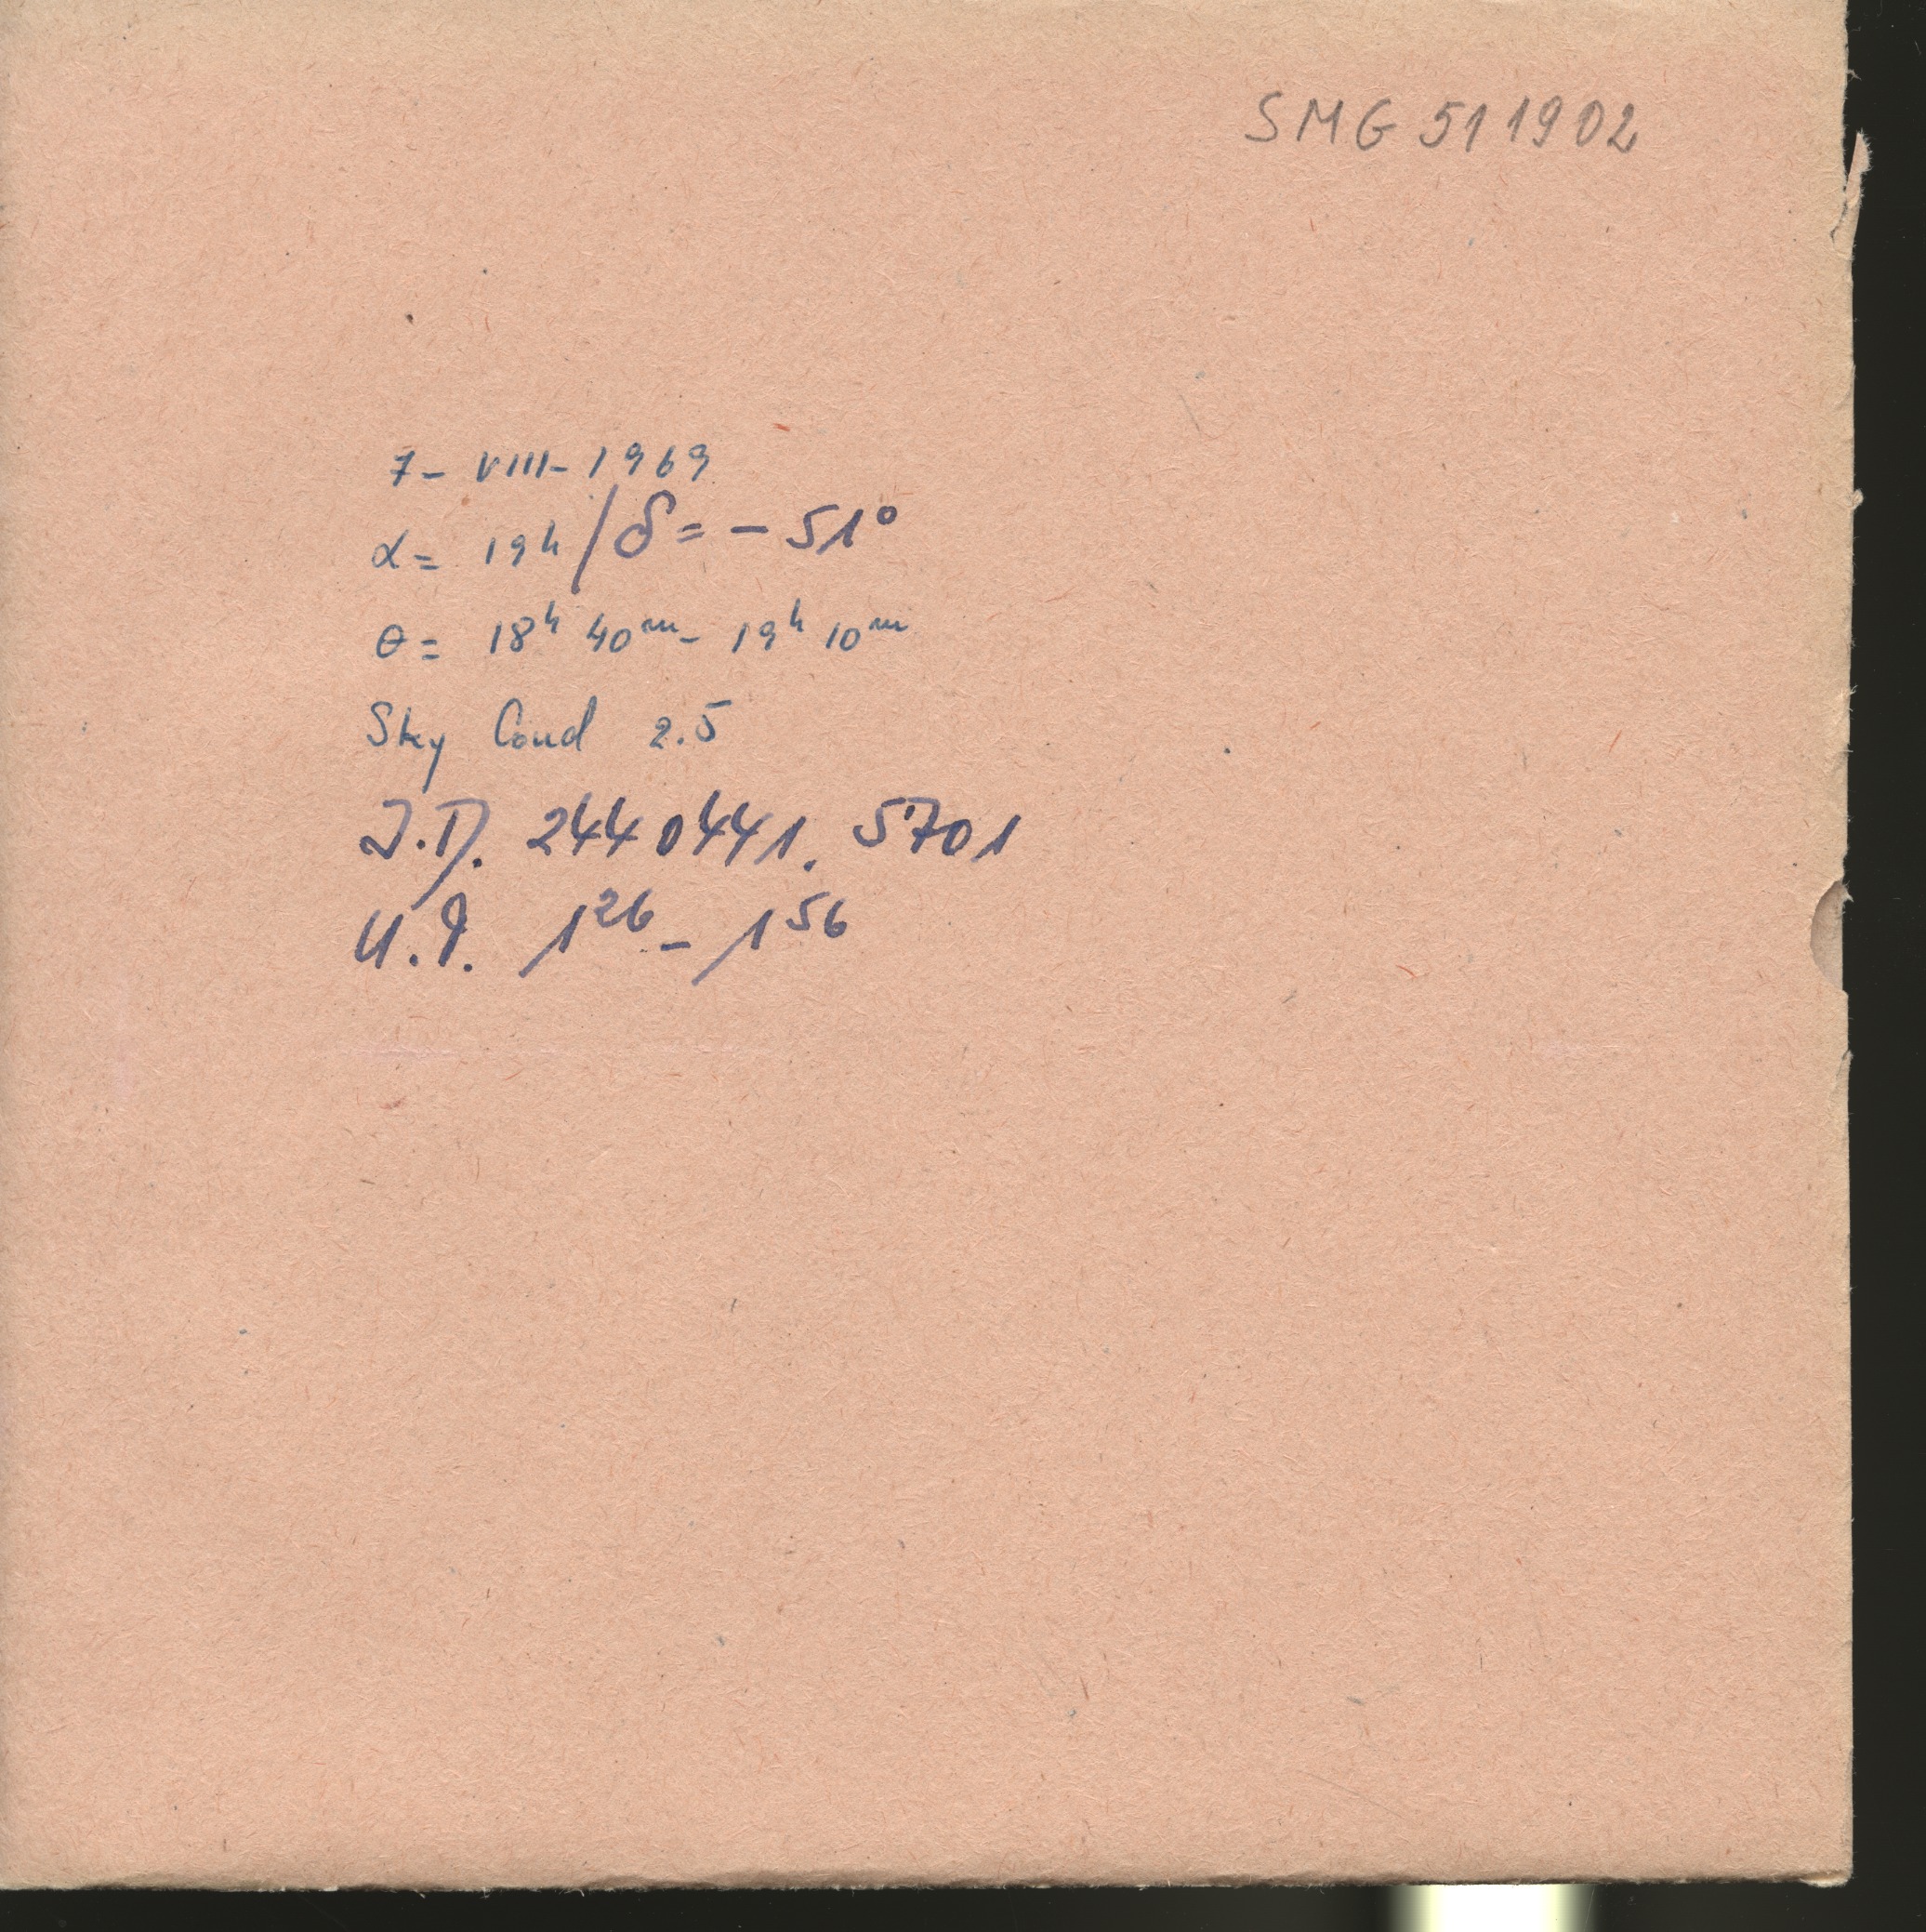 SMG 51 1902
7- VIII- 1969
α= 19h / δ= - 51°
θ= 18ʰ 40ᵐ- 19ʰ 10ᵐ
Sky Cond 2.5
J.D. 2440441.5701
U.T. 1²⁶ - 1⁵⁶